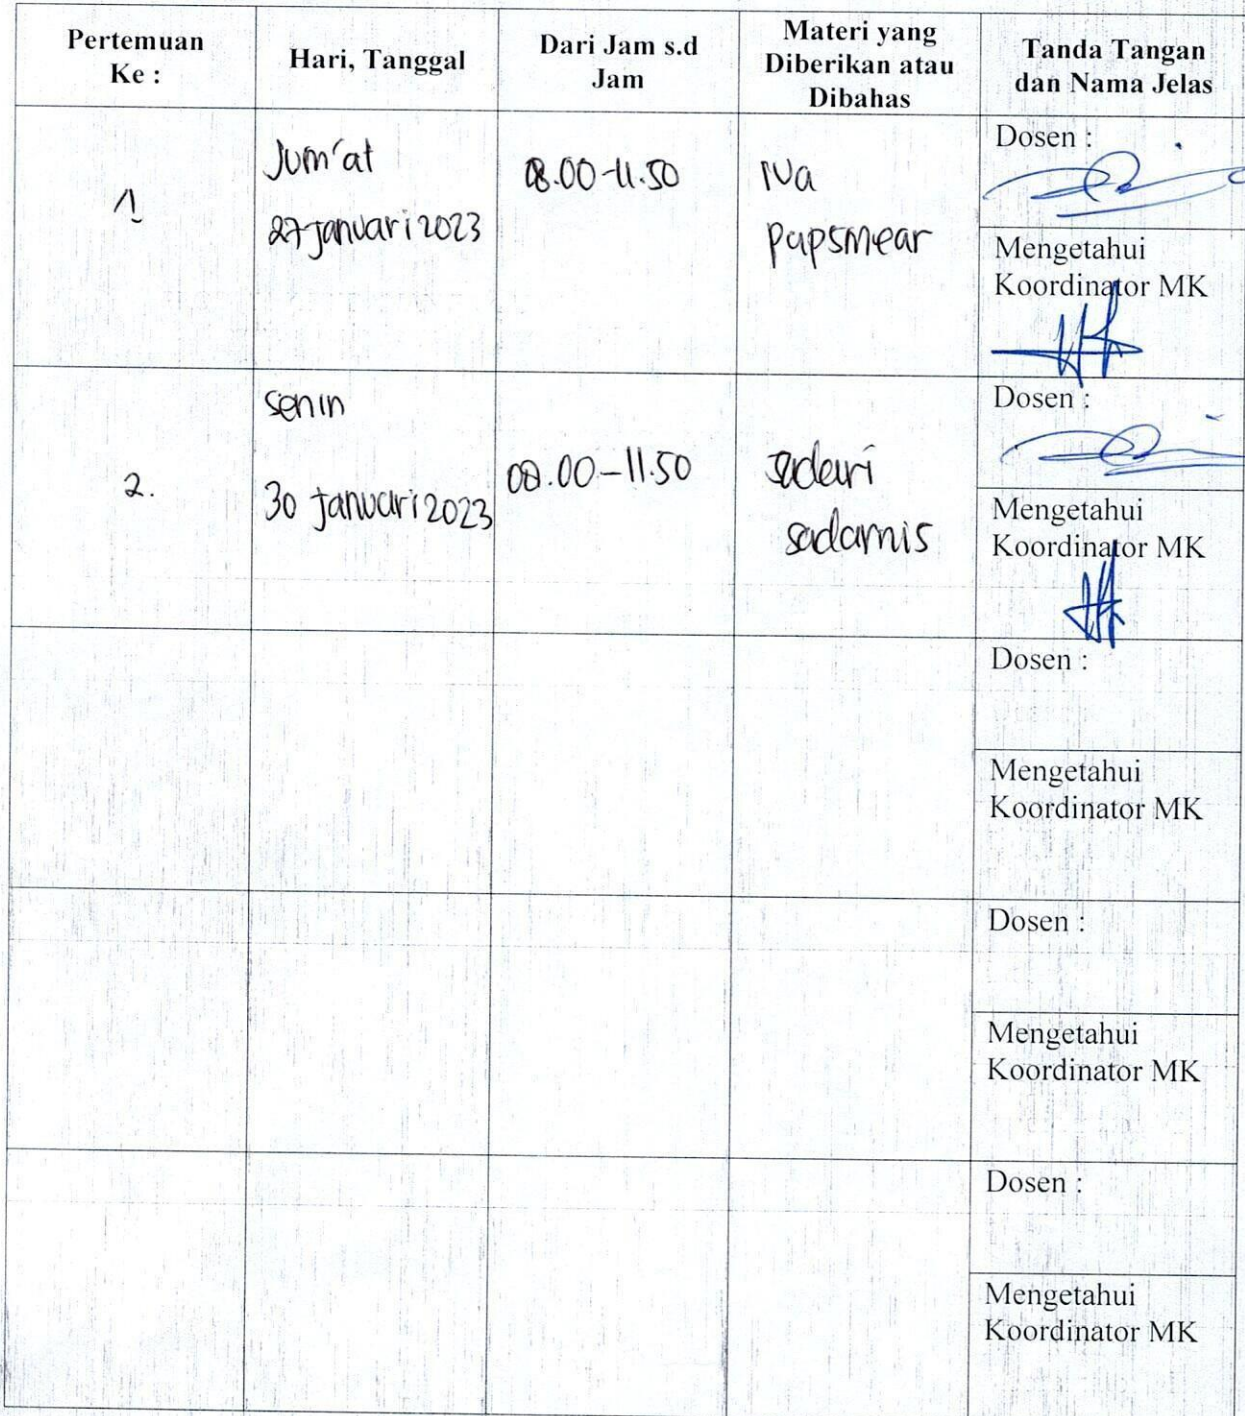 Pertemuan
Ke :
Hari, Tanggal
Dari Jam s.d
Jam
Materi yang
Diberikan atau
Dibahas
Tanda Tangan
dan Nama Jelas
1
Jum'at
27 januari 2023
08.00-11.50
IVa
papsmear
Dosen :
Mengetahui
Koordinator MK
2.
senin
30 januari 2023
08.00-11.50
sadari
sadarnis
Dosen :
Mengetahui
Koordinator MK
Dosen :
Mengetahui
Koordinator MK
Dosen :
Mengetahui
Koordinator MK
Dosen :
Mengetahui
Koordinator MK